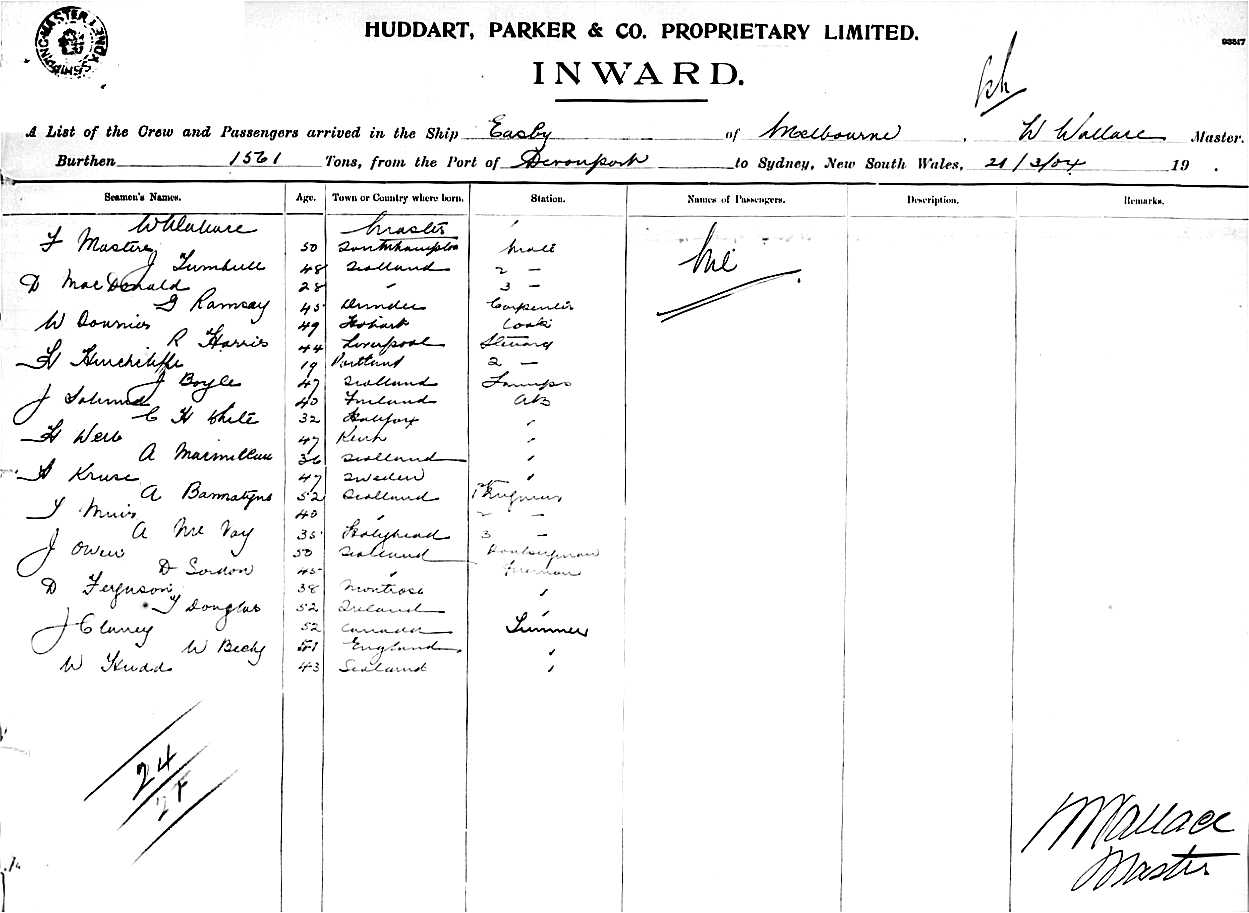 SHIPPING MASTER
HUDDART, PARKER & CO. PROPRIETARY LIMITED.
93517
INWARD.
A List of the Crew and Passengers arrived in the Ship Easby of Melbourne, W Wallace Master.
Burthen 1561 Tons, from the Port of Devonport to Sydney, New South Wales, 21/3/04 19 .
Seamen's Names. Age. Town or Country where born. Station. Names of Passengers. Description. Remarks.
W Wallace Master
F Masters 50 Southampton Mate Nil
J Turnbull 48 Scotland 2 -
D MacDonald 28 " 3 -
G Ramsay 45 Dundee Carpenter
W Downies 49 Hobart Cook
R Harris 44 Liverpool Steward
H Hinchcliffe 19 Portland 2 -
J Boyle 47 Scotland Lamps
J 40 Finland AB
C H White 32 Halifax "
H Webb 47 Kent "
A Macmillan 36 Scotland "
A Kruse 47 Sweden "
A Bannatyne 52 Scotland 1 Engineer
T Muir 40 " 2 -
A McVay 35 Holyhead 3 -
J Owen 50 Scotland Donkeyman
D Gordon 45 " Fireman
D Ferguson 38 Montrose "
T Douglas 52 Ireland "
J Clancy 52 Canada Trimmer
W 51 England "
W Kudd 43 Scotland "
24
W Wallace
Master